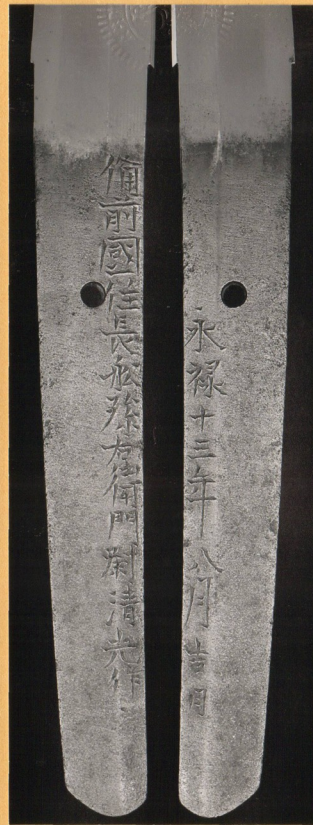 備前國住長舩孫右衛門尉清光作
永禄十三年八月吉日